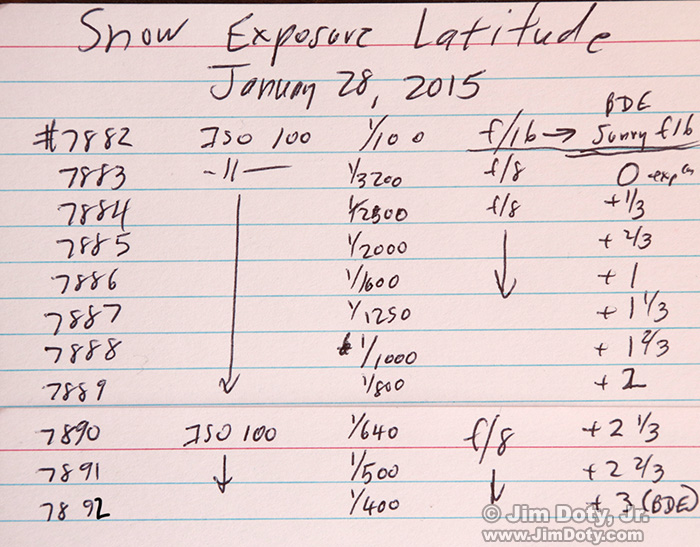 Snow Exposure Latitude
January 28, 2015
BDE
#7882 ISO 100 1/100 f/16 → Sunny f16
7883 -11- 1/3200 f/8 0 exp
7884 1/2500 f/8 +1/3
7885 1/2000 + 2/3
7886 1/1600 + 1
7887 1/1250 + 1 1/3
7888 1/1000 + 1 2/3
7889 1/800 + 2
7890 ISO 100 1/640 f/8 + 2 1/3
7891 1/500 + 2 2/3
7892 1/400 + 3 (BDE)
© Jim Doty, Jr.
www.JimDoty.com